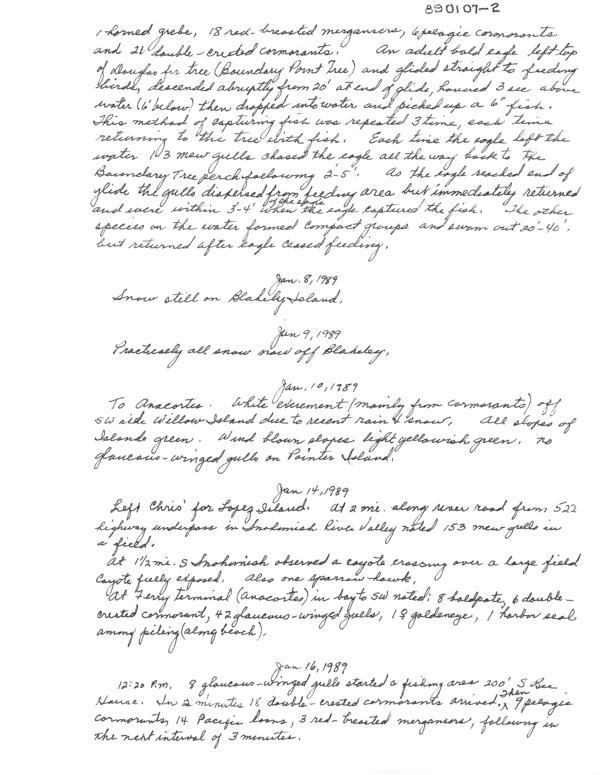 890107-2
1 horned grebe, 18 red-breasted mergansers, 6 pelagic cormorants
and 21 double-crested cormorants. An adult bald eagle left top
of Douglas fir tree (Boundary Point Tree) and glided straight to feeding
birds, descended abruptly from 20' at end of glide, hovered 3 sec above
water (6' below) then dropped into water and picked up a 6" fish.
This method of capturing fish was repeated 3 time, each time
returning to the tree with fish. Each time the eagle left the
water 1-3 mew gulls chased the eagle all the way back to the
Boundary Tree perch following 2-5'. As the eagle reached end of
glide the gulls dispersed from feeding area but immediately returned
and were within 3-4' of the eagle when the eagle captured the fish. The other
species on the water formed compact groups and swam out 20'-40'.
but returned after eagle ceased feeding.
Jan. 8, 1989
Snow still on Blakely Island.
Jan 9, 1989
Practicely all snow now off Blakeley.
Jan. 10, 1989
To Anacortes. White excrement (mainly from cormorants) off
SW side Willow Island due to recent rain & snow. All slopes of
Islands green. Wind blown slopes light yellowish green. no
glaucous-winged gulls on Pointer Island.
Jan 14, 1989
Left Chris' for Lopez Island. At 2 mi. along river road from 522
highway underpass in Snohomish River Valley noted 153 mew gulls in
a field.
At 1½ mi. S Snohomish observed a coyote crossing over a large field
Coyote fully exposed. Also one sparrow hawk.
At Ferry terminal (Anacortes) in bay to SW noted: 8 baldpate, 6 double-
crested cormorant, 42 glaucous-winged gulls, 1 ♀ goldeneye, 1 harbor seal
among piling (along beach).
Jan 16, 1989
12:20 P.m. 8 glaucous-winged gulls started a fishing area 200' S Bee
House. In 2 minutes 18 double-crested cormorants arrived. Then 9 pelagic
cormorants, 14 Pacific loons, 3 red-breasted mergansers, following in
the next interval of 3 minutes.